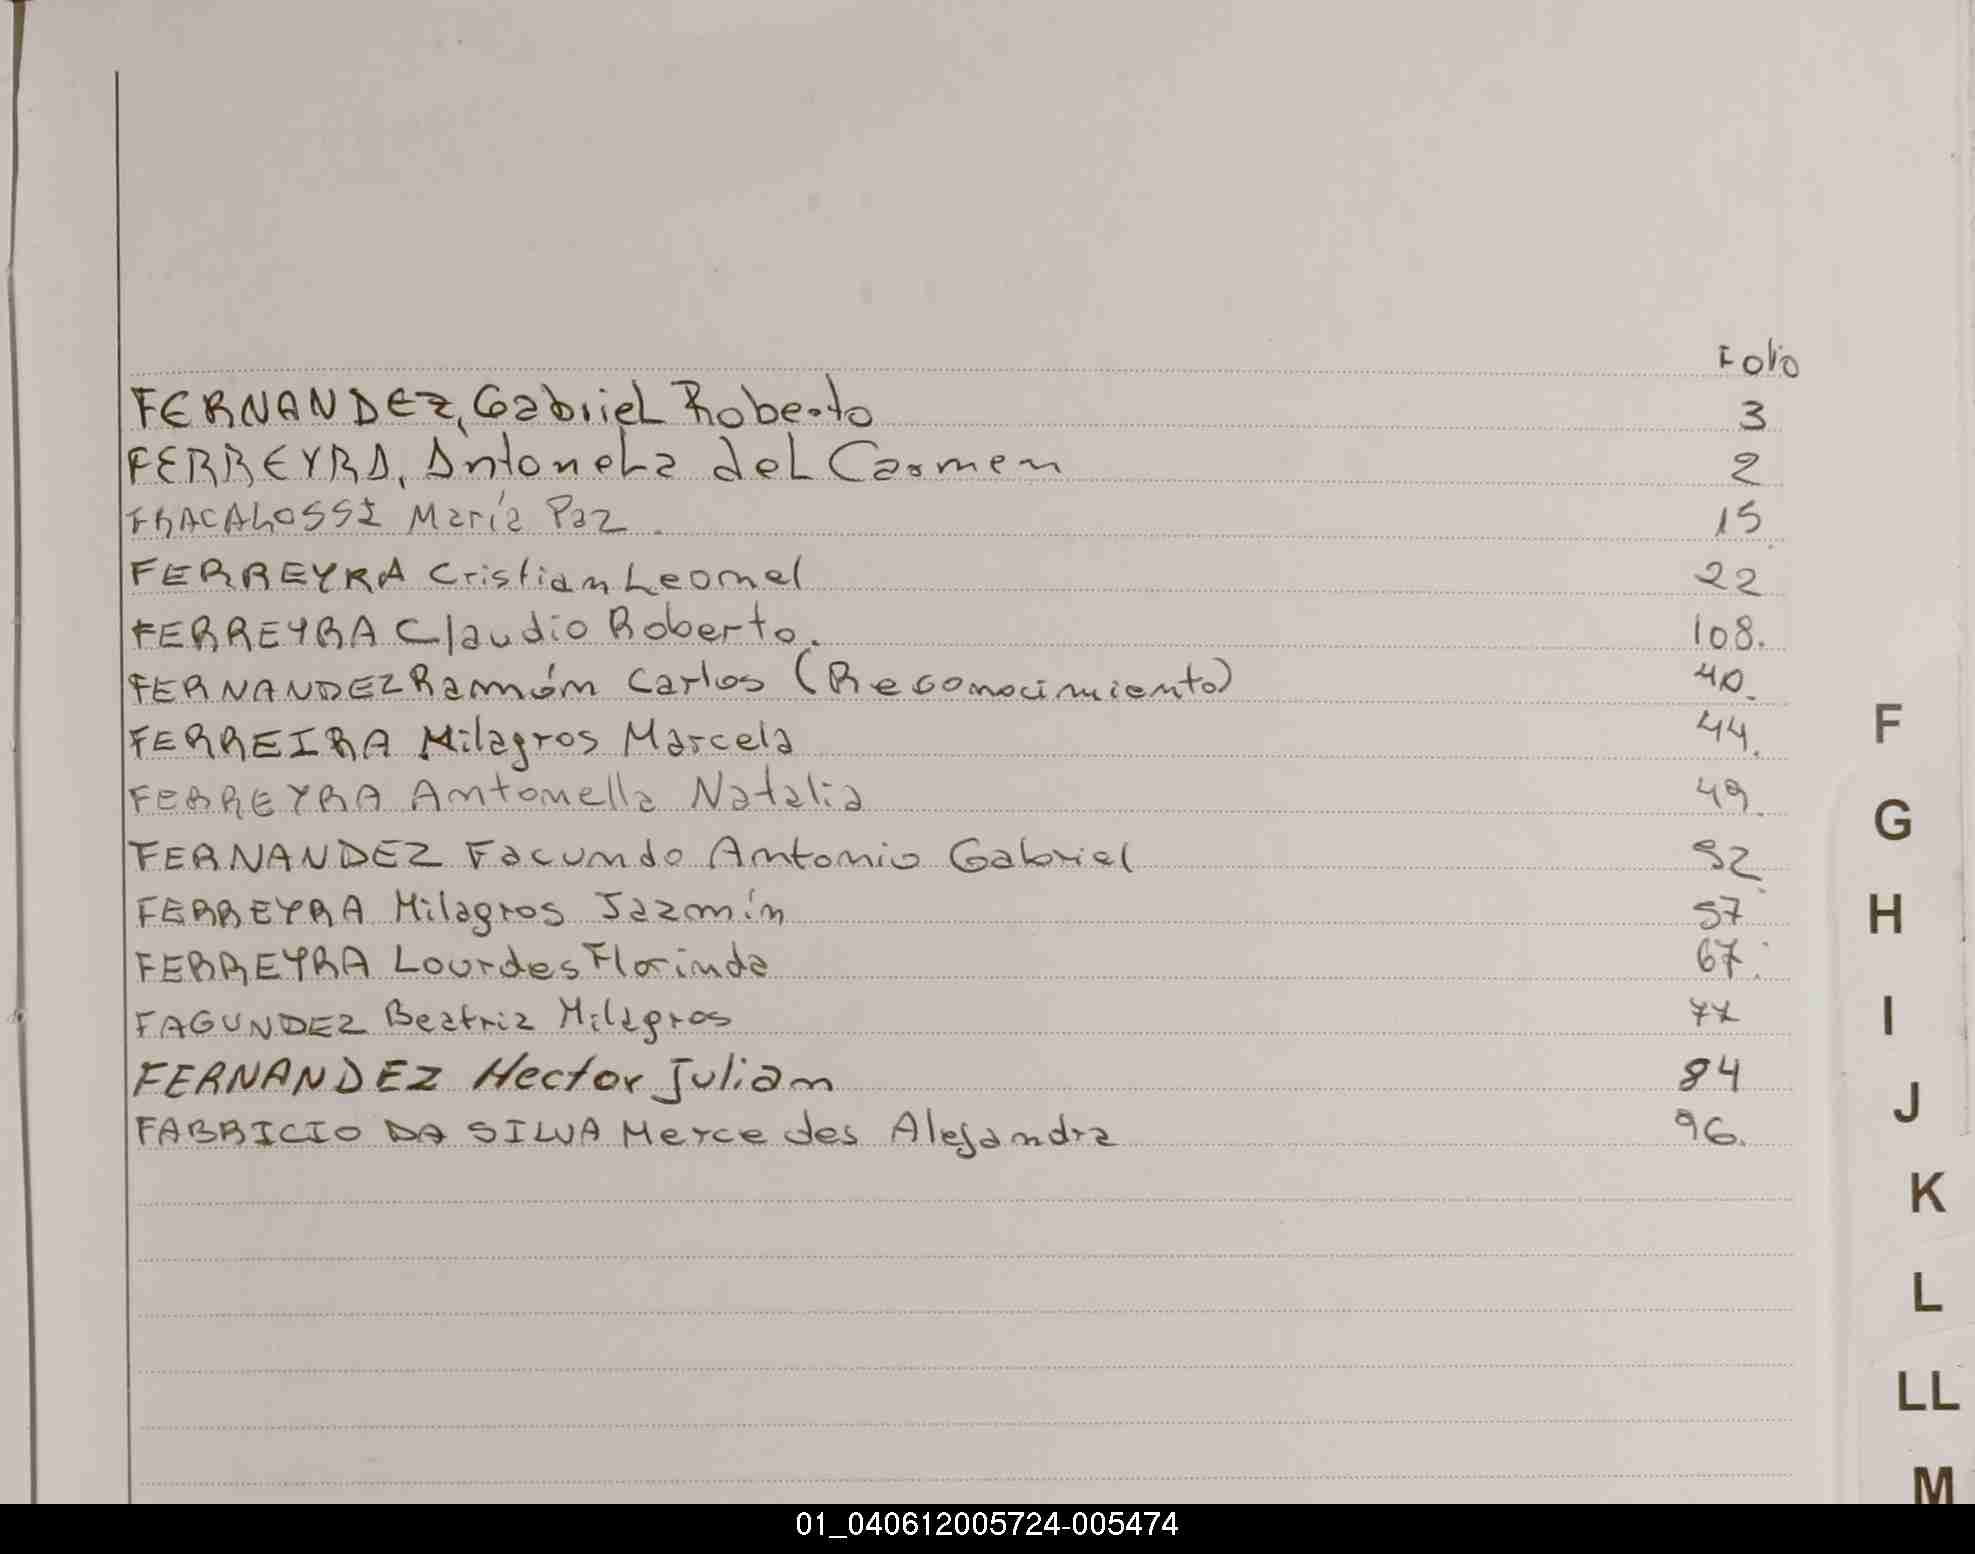 Folio
FERNANDEZ, Gabriel Roberto 3
FERREYRA, Antonela del Carmen 2
FRACALOSSI María Paz. 15
FERREYRA Cristian Leonel 22
FERREYRA Claudio Roberto. 108.
FERNANDEZ Ramón Carlos (Reconocimiento) 40.
FERREIRA Milagros Marcela 44.
FERREYRA Antonella Natalia 49.
FERNANDEZ Facundo Antonio Gabriel 52
FERREYRA Milagros Jazmín 57
FERREYRA Lourdes Florinda 67.
FAGUNDEZ Beatriz Milagros 77
FERNANDEZ Hector Julian 84
FABRICIO DA SILVA Mercedes Alejandra 96.
F
G
H
I
J
K
L
LL
M
01_040612005724-005474